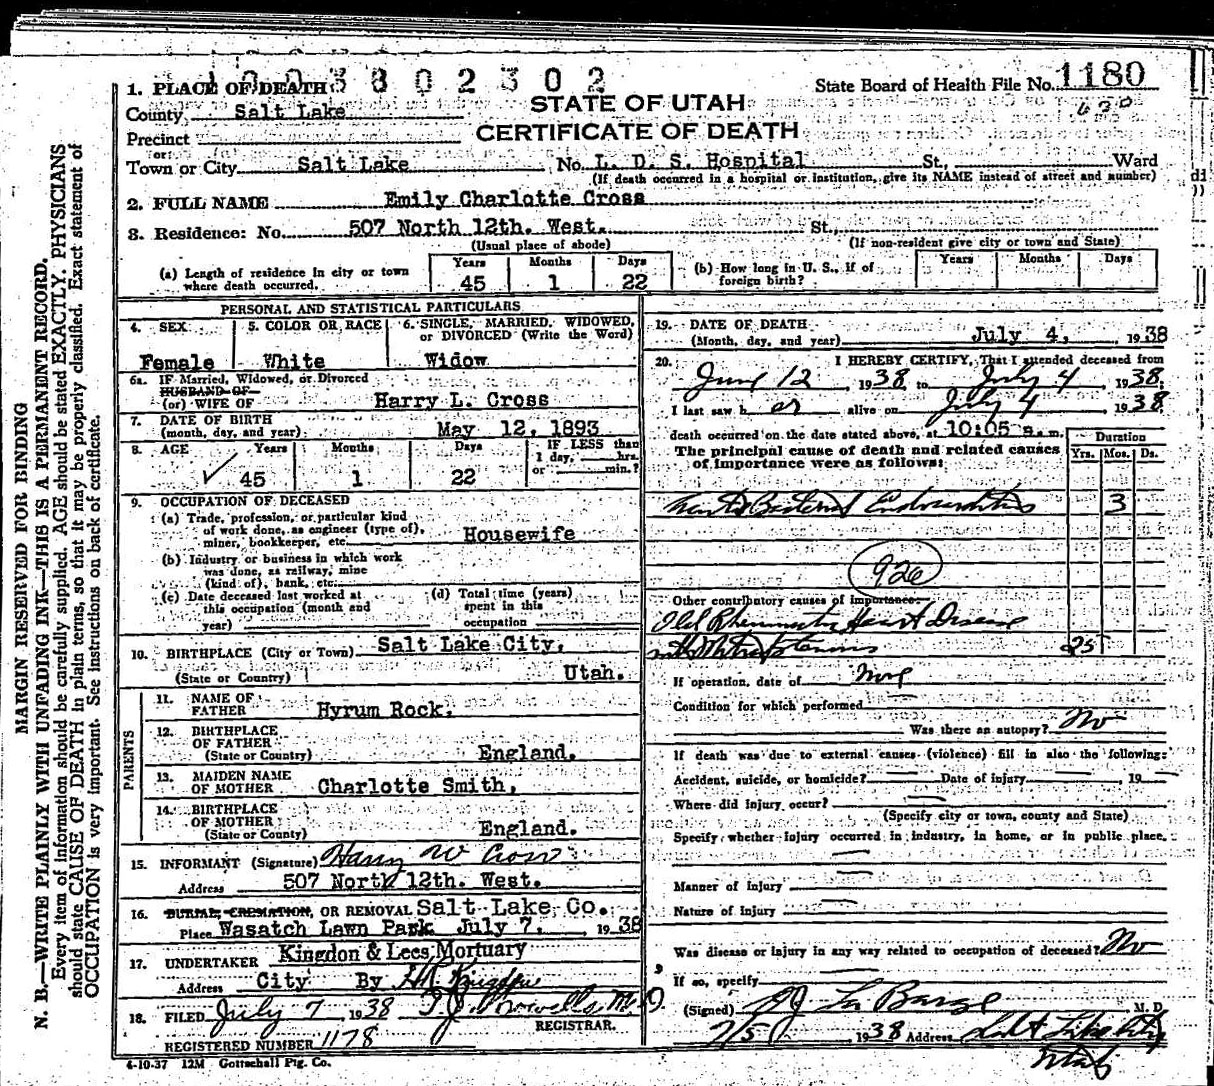 1003802302
1. PLACE OF DEATH
State Board of Health File No. 1180
County Salt Lake
STATE OF UTAH
630
Precinct
CERTIFICATE OF DEATH
or
Town or City Salt Lake No. L. D. S. Hospital St., Ward
(If death occurred in a hospital or institution, give its NAME instead of street and number)
2. FULL NAME Emily Charlotte Cross
3. Residence: No. 507 North 12th. West. St.,
(Usual place of abode) (If non-resident give city or town and State)
(a) Length of residence in city or town where death occurred. Years 45 Months 1 Days 22
(b) How long in U. S., if of foreign birth? Years Months Days
PERSONAL AND STATISTICAL PARTICULARS
4. SEX Female
5. COLOR OR RACE White
6. SINGLE, MARRIED, WIDOWED, or DIVORCED (Write the Word) Widow
6a. IF Married, Widowed, or Divorced
HUSBAND OF
(or) WIFE OF Harry L. Cross
7. DATE OF BIRTH
(month, day, and year) May 12, 1893
8. AGE Years 45 Months 1 Days 22 IF LESS than 1 day, hrs. or min.?
9. OCCUPATION OF DECEASED
(a) Trade, profession, or particular kind
of work done, as engineer (type of),
miner, bookkeeper, etc. Housewife
(b) Industry or business in which work
was done, as railway, mine
(kind of), bank, etc.
(c) Date deceased last worked at
this occupation (month and
year)
(d) Total time (years)
spent in this
occupation
10. BIRTHPLACE (City or Town) Salt Lake City,
(State or Country) Utah.
PARENTS
11. NAME OF
FATHER Hyrum Rock.
12. BIRTHPLACE
OF FATHER
(State or Country) England.
13. MAIDEN NAME
OF MOTHER Charlotte Smith,
14. BIRTHPLACE
OF MOTHER
(State or County) England.
15. INFORMANT (Signature) Harry W Cross
Address 507 North 12th. West.
16. BURIAL, CREMATION, OR REMOVAL Salt Lake Co.
Place Wasatch Lawn Park July 7, 1938
17. UNDERTAKER Kingdon & Lees Mortuary
Address City By
18. FILED July 7 1938 M.D.
REGISTRAR.
REGISTERED NUMBER 1178
4-10-37 12M Gottschall Ptg. Co.
19. DATE OF DEATH
(Month, day, and year) July 4, 1938
20. I HEREBY CERTIFY, That I attended deceased from
June 12, 1938, to July 4, 1938,
I last saw her alive on July 4, 1938
death occurred on the date stated above, at 10:05 a.m.
The principal cause of death and related causes
of importance were as follows:
Duration
Yrs. Mos. Ds.
Bacterial Endocarditis 3
926
Other contributory causes of importance:
Old Rheumatic Heart Disease
with Mitral stenosis 25
If operation, date of None
Condition for which performed
Was there an autopsy? No
If death was due to external causes (violence) fill in also the following:
Accident, suicide, or homicide? Date of injury , 19
Where did injury occur?
(Specify city or town, county and State)
Specify whether injury occurred in industry, in home, or in public place.
Manner of Injury
Nature of injury
Was disease or injury in any way related to occupation of deceased? No
If so, specify
(Signed) La Barge M. D.
7/5 1938 Address Salt Lake City
Utah
MARGIN RESERVED FOR BINDING
N. B.—WRITE PLAINLY WITH UNFADING INK—THIS IS A PERMANENT RECORD.
Every item of information should be carefully supplied. AGE should be stated EXACTLY. PHYSICIANS
should state CAUSE OF DEATH in plain terms, so that it may be properly classified. Exact statement of
OCCUPATION is very important. See instructions on back of certificate.